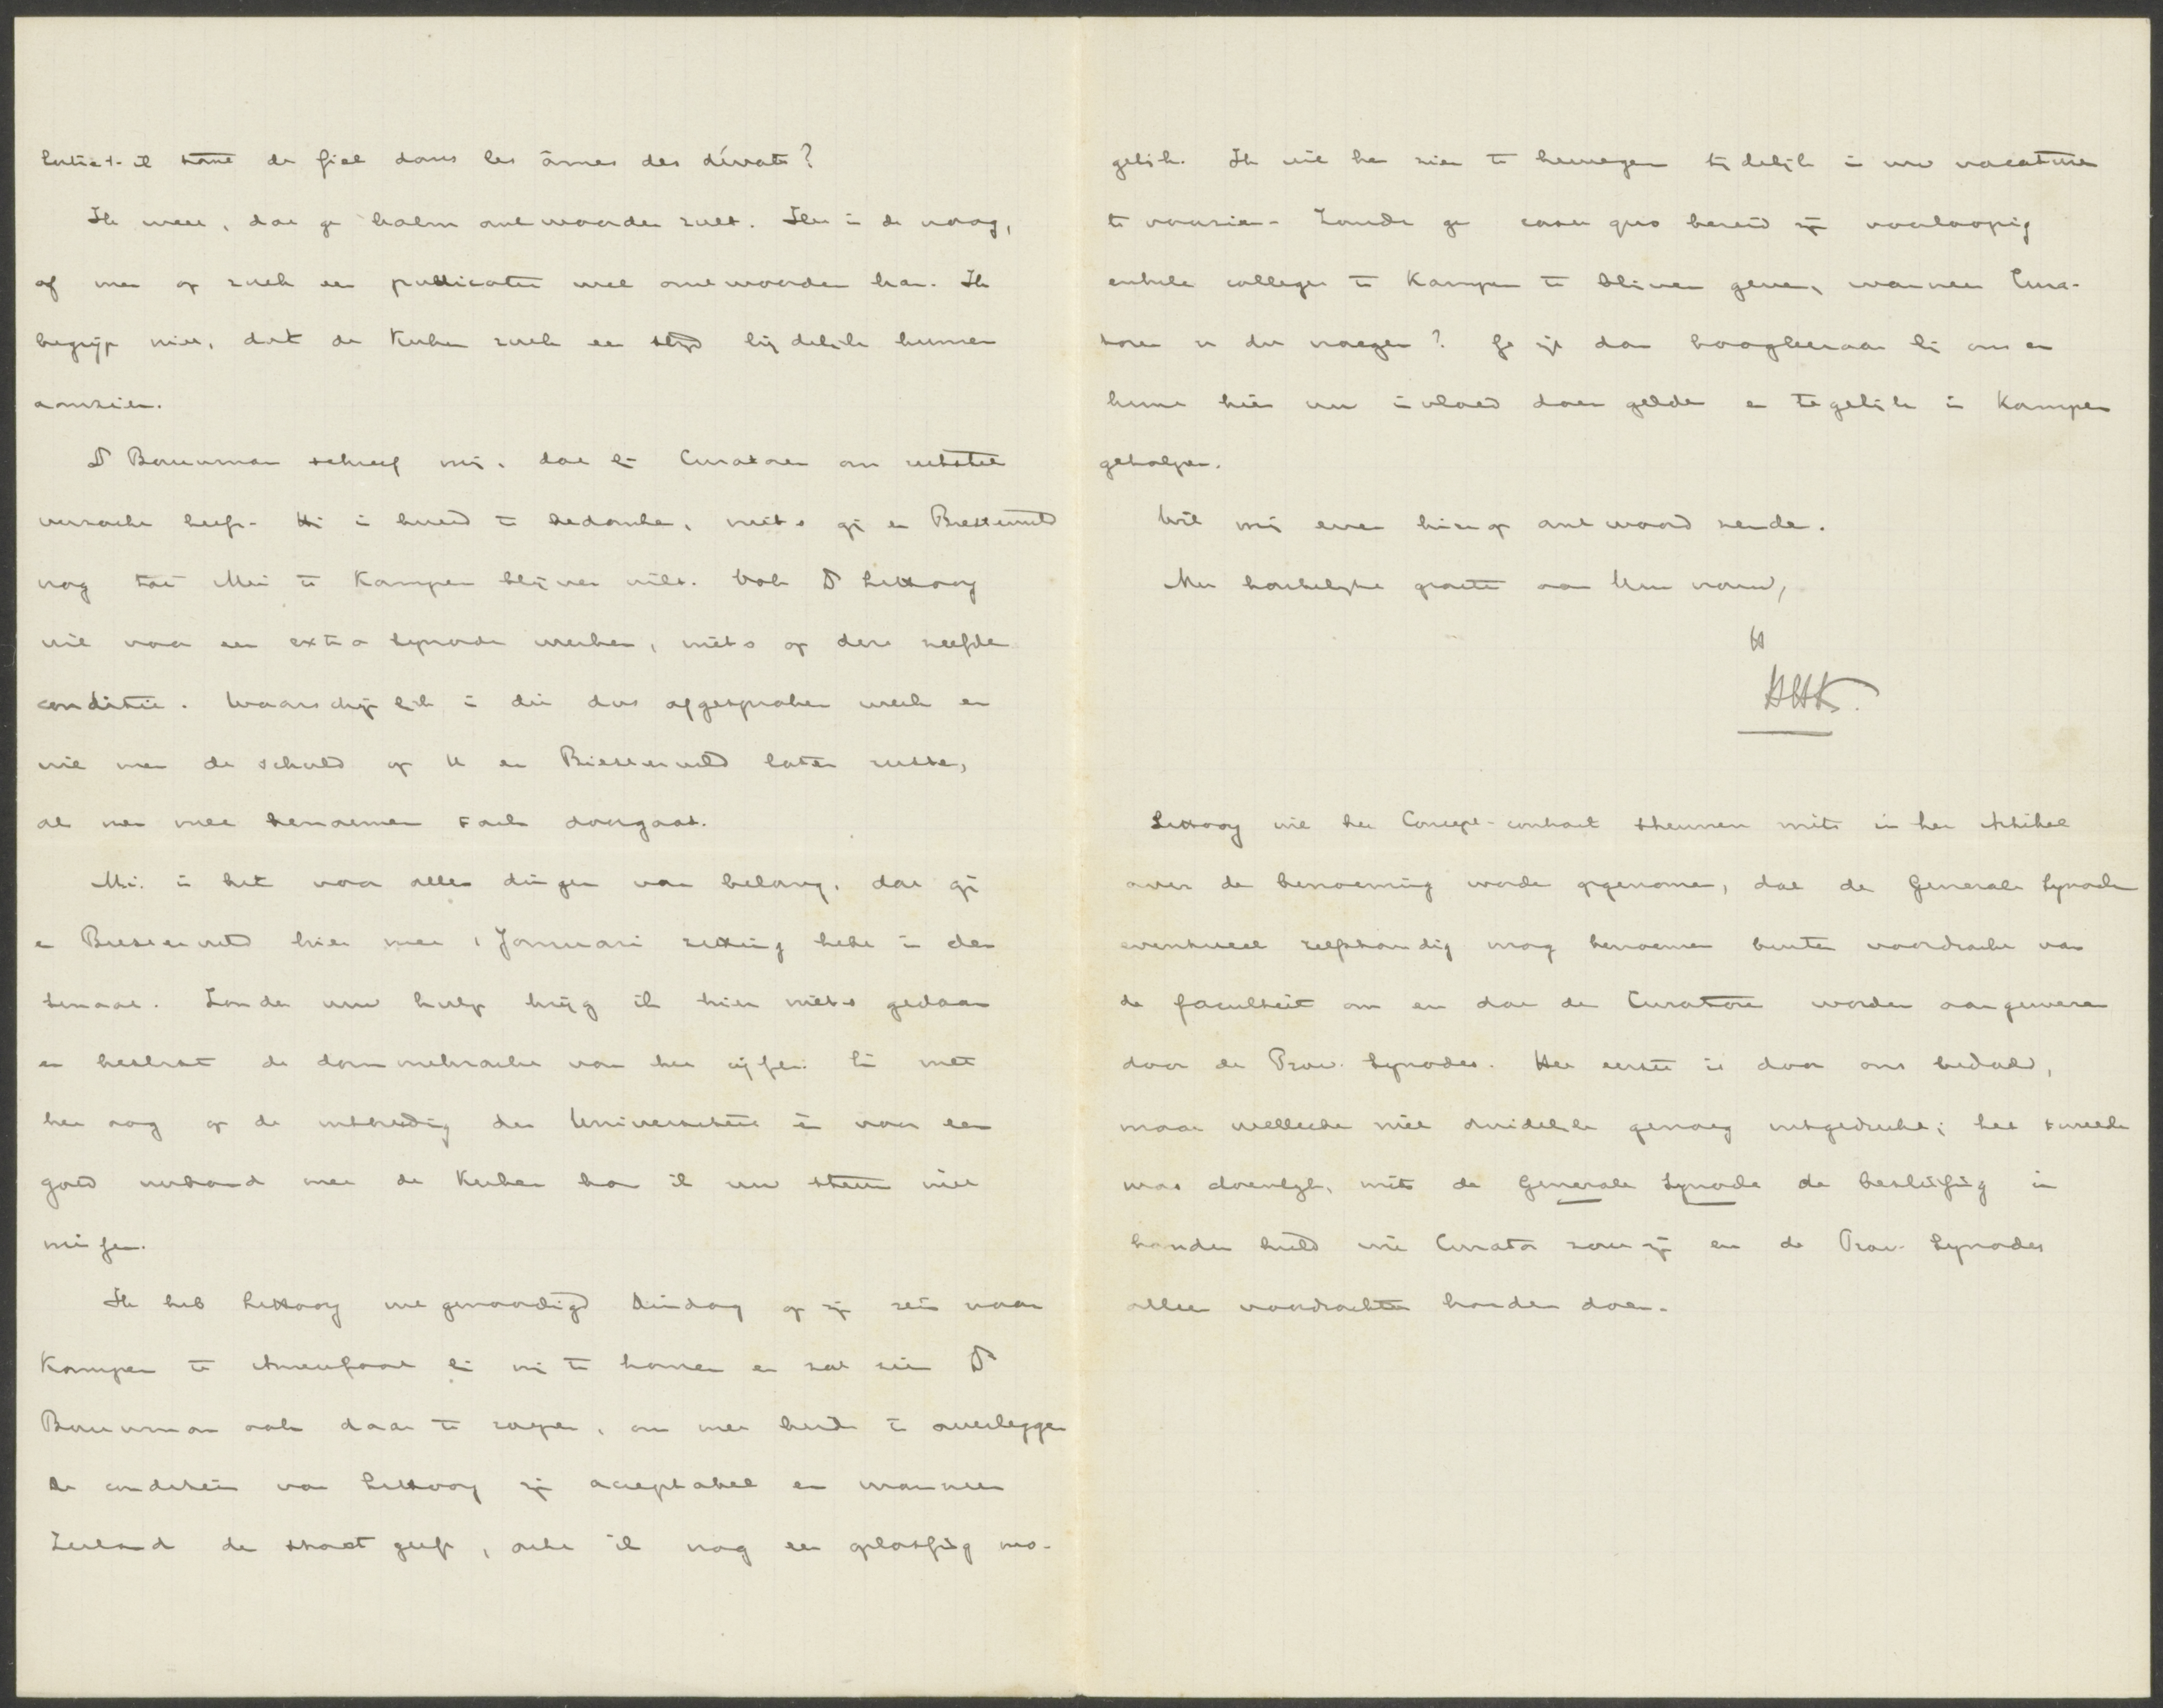 entre-t-il tant de fiel dans les âmes des dévots?
Ik weet, dat ge kalm antwoorden zult. Maar is de vraag,
of men op zulk een publicatie wel antwoorden kan. Ik
begrijp niet, dat de Kerken zulk een strijd lijdelijk kunnen
aanzien.
Ds Bouwman schreef mij, dat bij Curatoren om uitstel
verzocht heeft. Hij is bereid te bedanken, mits gij en Biesterveld
nog tot Mei te Kampen blijven wilt. Ook Ds Littooy
wil voor een extra Synode werken, mits op deze zelfde
conditie. Waarschijnlijk is dit dus afgesproken werk en
wil men de schuld op U en Biesterveld laten rusten,
als men mee benoemen zaak doorgaat.
Mij is het voor alle dingen van belang, dat gij
en Biesterveld hier met 1 Januari zitting hebt in den
Senaat. Zonder uw hulp krijg ik hier niets gedaan
en beslist de domme kracht van het cijfer. Bij met
het oog op de uitbreiding der Universiteit en voor een
goed verband met de Kerken kan ik uw steun niet
missen.
Ik heb Littooy uitgenoodigd Dinsdag op zijn reis naar
Kampen te Amersfoort bij mij te komen en zal zien Ds
Bouwman ook daar te roepen, om met beide te overleggen
De conditien van Littooy zijn acceptabel en wanneer
Zeeland de stoot geeft, acht ik nog een oplossing mo-
gelijk. Ik wil hen zien te bewegen tijdelijk in uw vacature
te voorzien. Zoudt ge casu quo bereid zijn voorloopig
enkele colleges te Kampen te blijven geven, wanneer Cura-
toren u dit vragen? Ge zijt dan hoogleeraar bij ons en
kunt hier uw invloed doen gelden en tegelijk is Kampen
geholpen.
Wil mij even hierop antwoord zenden.
Met hartelijke groete aan Uw vrouw,
tt
HHK.
Littooy wil het Concept-contract steunen mits in het Artikel
over de benoeming worde opgenomen, dat de Generale Synode
eventueel zelfstandig mag benoemen buiten voordracht van
de faculteit om en dat de Curatoren worden aangewezen
door de Prov. Synodes. Het eerste is door ons bedoeld,
maar wellicht niet duidelijk genoeg uitgedrukt; het tweede
was doenlijk, mits de Generale Synode de beslissing in
handen hield wie Curator zou zijn en de Prov. Synodes
alleen voordrachten konden doen.